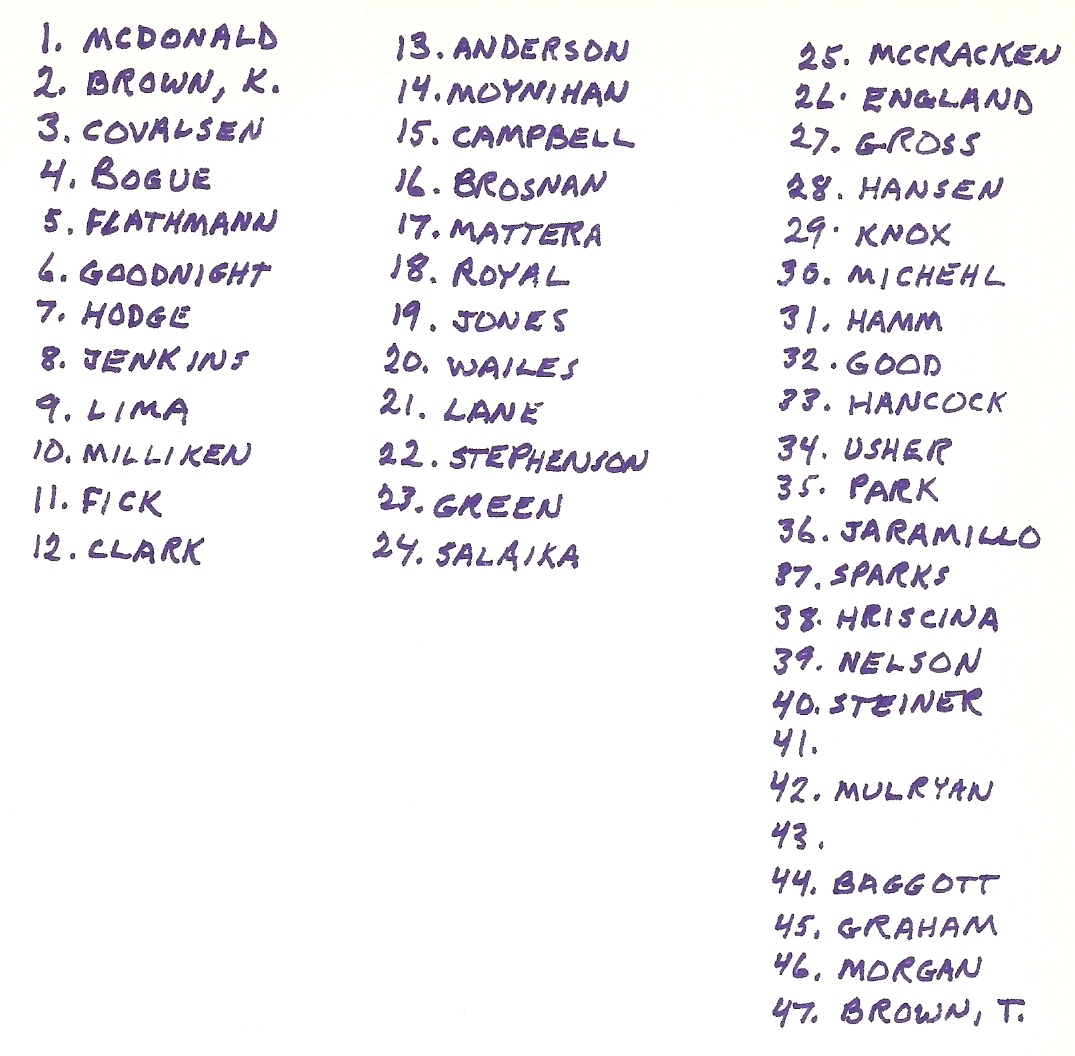 1. MCDONALD
2. BROWN, K.
3. COVALSEN
4. BOGUE
5. FLATHMANN
6. GOODNIGHT
7. HODGE
8. JENKINS
9. LIMA
10. MILLIKEN
11. FICK
12. CLARK
13. ANDERSON
14. MOYNIHAN
15. CAMPBELL
16. BROSNAN
17. MATTERA
18. ROYAL
19. JONES
20. WAILES
21. LANE
22. STEPHENSON
23. GREEN
24. SALAIKA
25. MCCRACKEN
26. ENGLAND
27. GROSS
28. HANSEN
29. KNOX
30. MICHEHL
31. HAMM
32. GOOD
33. HANCOCK
34. USHER
35. PARK
36. JARAMILLO
37. SPARKS
38. HRISCINA
39. NELSON
40. STEINER
41.
42. MULRYAN
43.
44. BAGGOTT
45. GRAHAM
46. MORGAN
47. BROWN, T.